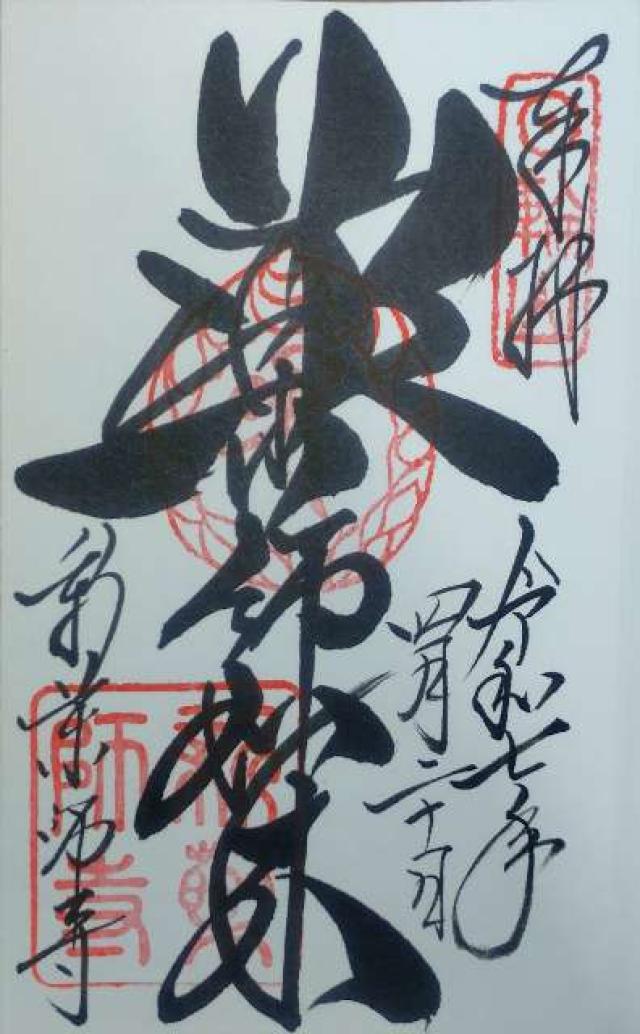 奉拝
令和七年
四月二十日
薬師如来
新薬師寺
新薬師寺